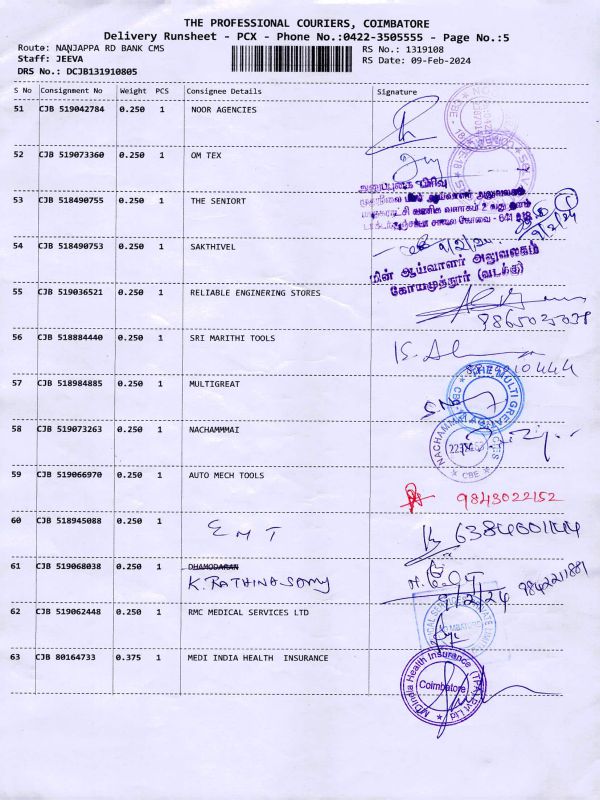 THE PROFESSIONAL COURIERS, COIMBATORE
Delivery Runsheet - PCX - Phone No.:0422-3505555 - Page No.:5
Route: NANJAPPA RD BANK CMS
RS No.: 1319108
Staff: JEEVA
RS Date: 09-Feb-2024
DRS No.: DCJB131910805
S No Consignment No Weight PCS Consignee Details Signature
51 CJB 519042784 0.250 1 NOOR AGENCIES
52 CJB 519073360 0.250 1 OM TEX
அனுப்புகை பிரிவு
53 CJB 518490755 0.250 1 THE SENIORT
9/2/24
54 CJB 518490753 0.250 1 SAKTHIVEL
9/2/24
மின் ஆய்வாளர் அலுவலகம்
கோயமுத்தூர் (வடக்கு)
55 CJB 519036521 0.250 1 RELIABLE ENGINERING STORES
9865025038
56 CJB 518884440 0.250 1 SRI MARITHI TOOLS
57 CJB 518984885 0.250 1 MULTIGREAT
THE MULTI GREAT
58 CJB 519073263 0.250 1 NACHAMMMAI
CBE
59 CJB 519066970 0.250 1 AUTO MECH TOOLS
9843022152
60 CJB 518945088 0.250 EMT
61 CJB 519068038 0.250 DHAMODARAN
K. RATHINASOMY
9842211881
9/2/24
62 CJB 519062448 0.250 1 RMC MEDICAL SERVICES LTD
63 CJB 80164733 0.375 1 MEDI INDIA HEALTH INSURANCE
MDIndia Health Insurance (TPA) Pvt Ltd
Coimbatore